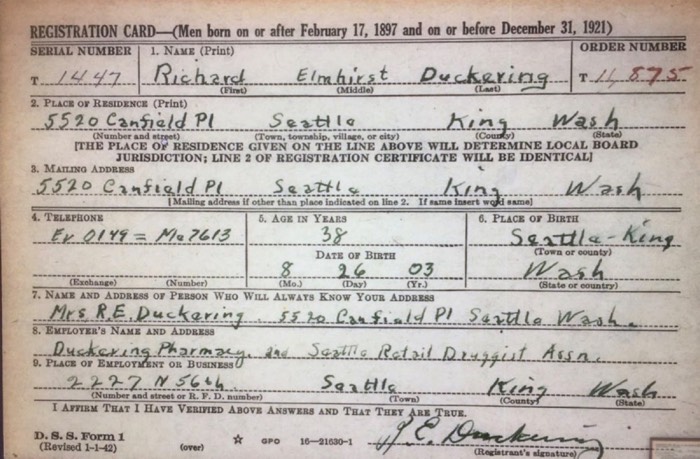 REGISTRATION CARD—(Men born on or after February 17, 1897 and on or before December 31, 1921)
SERIAL NUMBER 1. NAME (Print) ORDER NUMBER
T 1447 Richard Elmhirst Duckering T 11,875
(First) (Middle) (Last)
2. PLACE OF RESIDENCE (Print)
5520 Canfield Pl Seattle King Wash
(Number and street) (Town, township, village, or city) (County) (State)
[THE PLACE OF RESIDENCE GIVEN ON THE LINE ABOVE WILL DETERMINE LOCAL BOARD
JURISDICTION; LINE 2 OF REGISTRATION CERTIFICATE WILL BE IDENTICAL]
3. MAILING ADDRESS
5520 Canfield Pl Seattle King Wash
[Mailing address if other than place indicated on line 2. If same insert word same]
4. TELEPHONE 5. AGE IN YEARS 6. PLACE OF BIRTH
Ev 0149 = Ma 7613 38 Seattle - King
DATE OF BIRTH (Town or county)
8 26 03 Wash
(Exchange) (Number) (Mo.) (Day) (Yr.) (State or country)
7. NAME AND ADDRESS OF PERSON WHO WILL ALWAYS KNOW YOUR ADDRESS
Mrs R.E. Duckering 5520 Canfield Pl Seattle Wash.
8. EMPLOYER'S NAME AND ADDRESS
Duckering Pharmacy and Seattle Retail Druggist Assn.
9. PLACE OF EMPLOYMENT OR BUSINESS
2227 N 56th Seattle King Wash.
(Number and street or R. F. D. number) (Town) (County) (State)
I AFFIRM THAT I HAVE VERIFIED ABOVE ANSWERS AND THAT THEY ARE TRUE.
D. S. S. Form 1 R.E. Duckering
(Revised 1-1-42) (over) ☆ GPO 16—21630-1 (Registrant's signature)